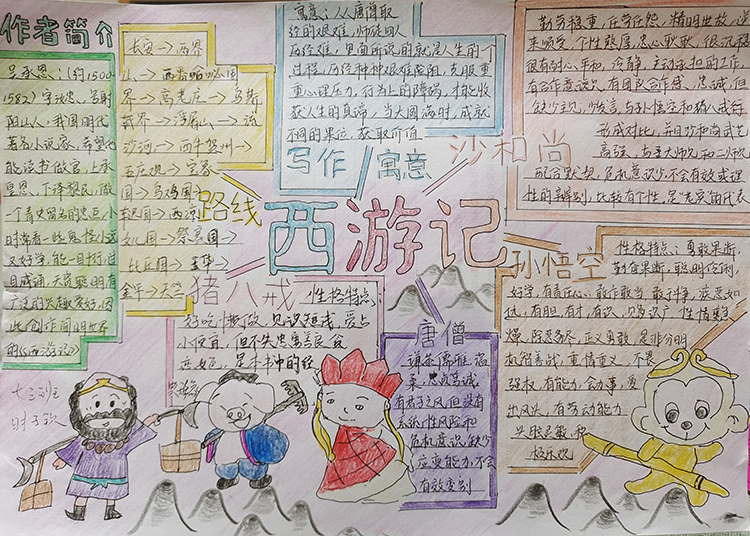 作者简介
吴承恩:(约1500
1582)字汝忠,号射
阳山人,我国明代
著名小说家,希望他
能读书做官,上承
皇恩,下泽黎民,做
一个青史留名的忠臣,小
时常看一些鬼怪小说
又好学,能一目十行过
目成诵,天资聪明有
广泛的兴趣爱好,因
此创作闻名世界
的《西游记》
长安→两界
山→
界→高老庄→乌斯
藏界→浮屠山→流
沙河→西牛贺州→
五庄观→宝象
国→乌鸡国→
国→西凉
女儿国→祭赛国→
比丘国→
路线
寓意:从人唐僧取
经的艰难,师徒四人
历经难,里面所说的就是人生的一个
过程,历经种种艰难险阻,克服重
重心理压力,行为上的障碍,才能收
获人生的真谛,当大圆满时,成就
不同的果位,获取价值
写作寓意
西游记
沙和尚
勤劳稳重,任劳任怨,精明世故,逆
来顺受,个性憨厚,忠心耿耿,很沉稳
很有耐心,平和,冷静,主动承担的工作,
有合作意识人,有团队合作感,忠诚,但
缺少主见,少发言,与孙悟空和猪八戒行
形成对比,并且沙和尚武艺
高强,与差大师兄和二师兄
配合默契,危机意识少不会有效或理
性的辨别,比较有个性,是“老实”的代表
孙悟空
性格特点:勇敢果断,
勤奋果断,聪明伶俐,
好学,有责任心,敢作敢当,敢于斗争,疾恶如
仇,有胆,有才,有识,见多识广,性情急
燥,除恶务尽,正义勇敢,是非分明
机智善战,重情重义,不畏
强权,有能力,会办事,爱
出风头,有劳动能力
火眼金睛,积
极乐观
猪八戒
性格特点:
好吃懒做,见识短浅,爱占
小便宜,但不失忠勇善良,贪
恋女色,是本书中的
唐僧
谦恭儒雅,温
柔,忠贞节诚,
有君子之风,但没有
系统性风险和
危机意识,缺少
应变能力,不会
有效变别
七三班